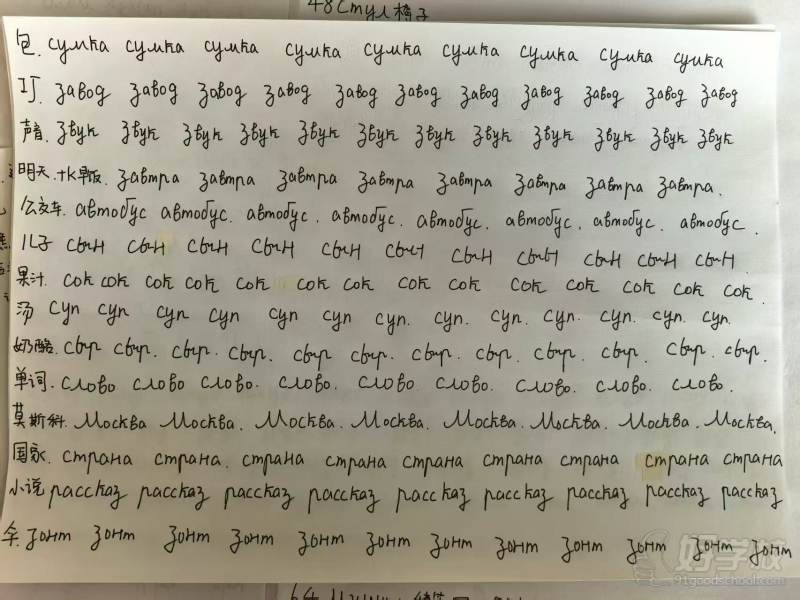 48 стул 椅子
包. сумка сумка сумка сумка сумка сумка сумка сумка сумка
工厂. завод завод завод завод завод завод завод завод завод завод завод
声音. звук звук звук звук звук звук звук звук звук звук звук звук
明天. завтра завтра завтра завтра завтра завтра завтра завтра.
公交车. автобус автобус. автобус. автобус. автобус. автобус. автобус. автобус.
儿子 сын сын сын сын сын сын сын сын сын сын сын
果汁. сок сок сок сок сок сок сок сок сок сок сок сок сок сок.
汤 суп суп суп суп суп суп суп. суп. суп. суп. суп. суп. суп.
奶酪. сыр сыр. сыр. сыр. сыр сыр. сыр. сыр. сыр. сыр. сыр. сыр.
单词. слово слово слово. слово. слово слово. слово. слово. слово.
莫斯科. Москва Москва. Москва. Москва. Москва. Москва. Москва. Москва.
国家. страна страна. страна страна страна страна страна страна страна
小说 рассказ рассказ рассказ рассказ рассказ рассказ рассказ рассказ рассказ
伞. зонт зонт зонт зонт зонт зонт зонт зонт зонт зонт зонт зонт
好学校
91goodschool.com